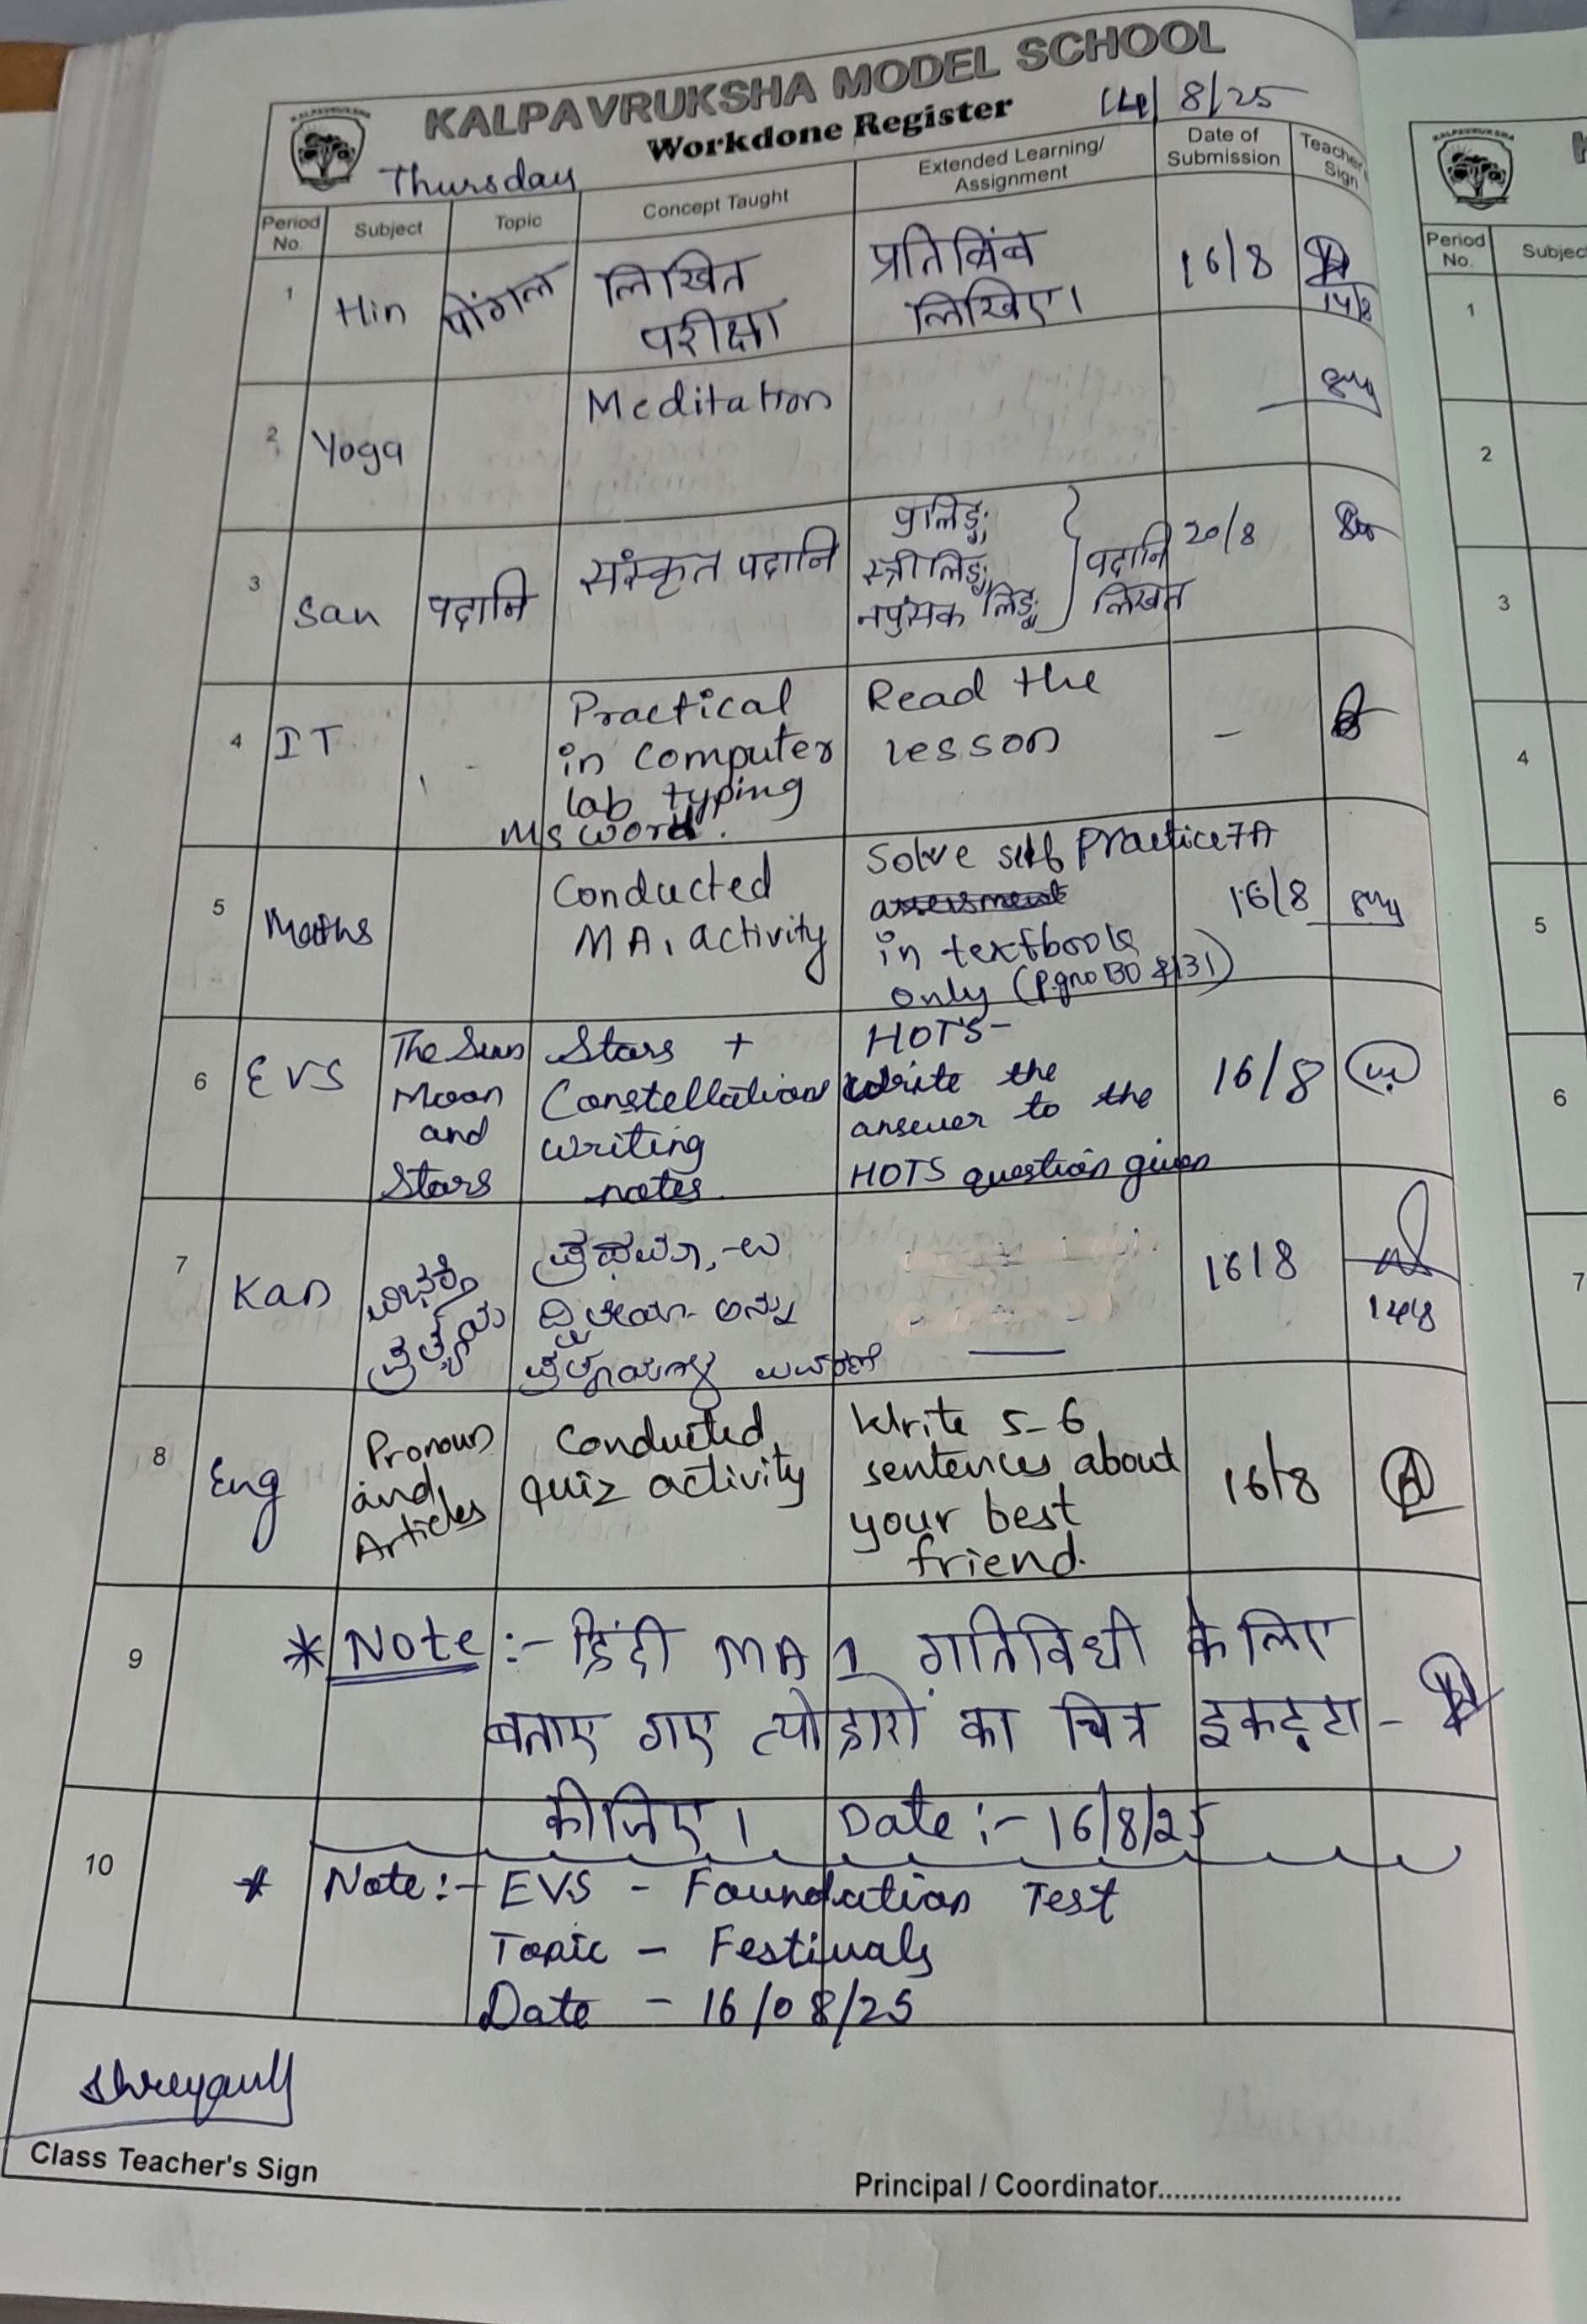 KALPAVRUKSHA MODEL SCHOOL
Workdone Register
14/8/25
Thursday
Period No.
Subject
Topic
Concept Taught
Extended Learning/ Assignment
Date of Submission
Teacher's Sign
1
Hin
पोंगल
लिखित
परीक्षा
प्रतिबिंब
लिखिए।
16/8
14/8
2
Yoga
Meditation
3
San
पदानि
संस्कृत पदानि
पुलिङ्ग:
स्त्रीलिङ्ग:
नपुंसक लिङ्ग:
पदानि
लिखत
20/8
4
IT
-
Practical
in computer
lab typing
Ms word.
Read the
lesson
-
5
Maths
Conducted
MA1 activity
Solve self Practice 7A
in textbook
only (P.gno 130 & 131)
16/8
6
EVS
The Sun
Moon
and
Stars
Stars +
Constellation
writing
notes.
HOTS-
Write the
answer to the
HOTS question given
16/8
7
Kan
16/8
14/8
8
Eng
Pronoun
and
Articles
Conducted
quiz activity
Write 5-6
sentences about
your best
friend.
16/8
9
* Note :- हिंदी MA 1 गतिविधी के लिए
बताए गए त्योहारों का चित्र इकट्टा -
कीजिए। Date :- 16/8/25
10
* Note :- EVS - Foundation Test
Topic - Festivals
Date - 16/08/25
Class Teacher's Sign
Principal / Coordinator..............................
Period No.
Subjec
1
2
3
4
5
6
7